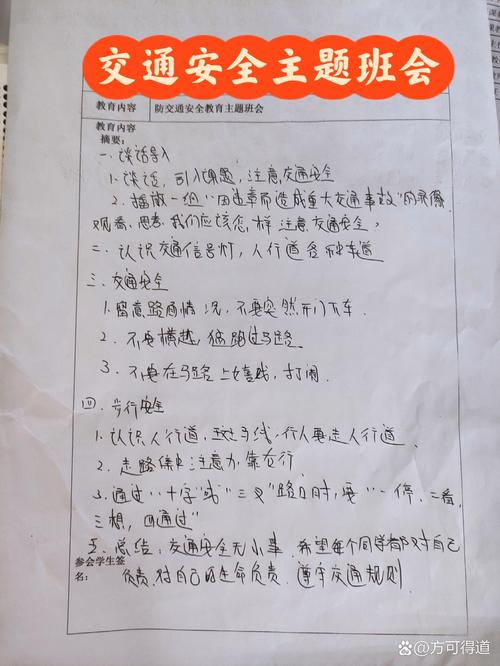 交通安全主题班会
教育内容 防交通安全教育主题班会
教育内容
摘要:
一、谈话导入
1.谈话,引入课题,注意交通安全
2.播放一组"因违章而造成重大交通事故"的录像
观看,思考,我们应该怎样注意交通安全?
二、认识交通信号灯,人行道各种车道
三、交通安全
1.留意路面情况,不要突然开门下车.
2.不要横越,猛跑过马路
3.不要在马路上嬉戏,打闹
四.步行安全
1.认识人行道,斑马线,行人要走人行道
2.走路集中注意力靠右行
3.通过"十字"或"三叉"路口时,要"一停、二看,
三想,四通过"
五.总结:交通安全无小事.希望每个同学都对自己
参会学生签
名:
负责,对自己的生命负责.遵守交通规则
@方可得道